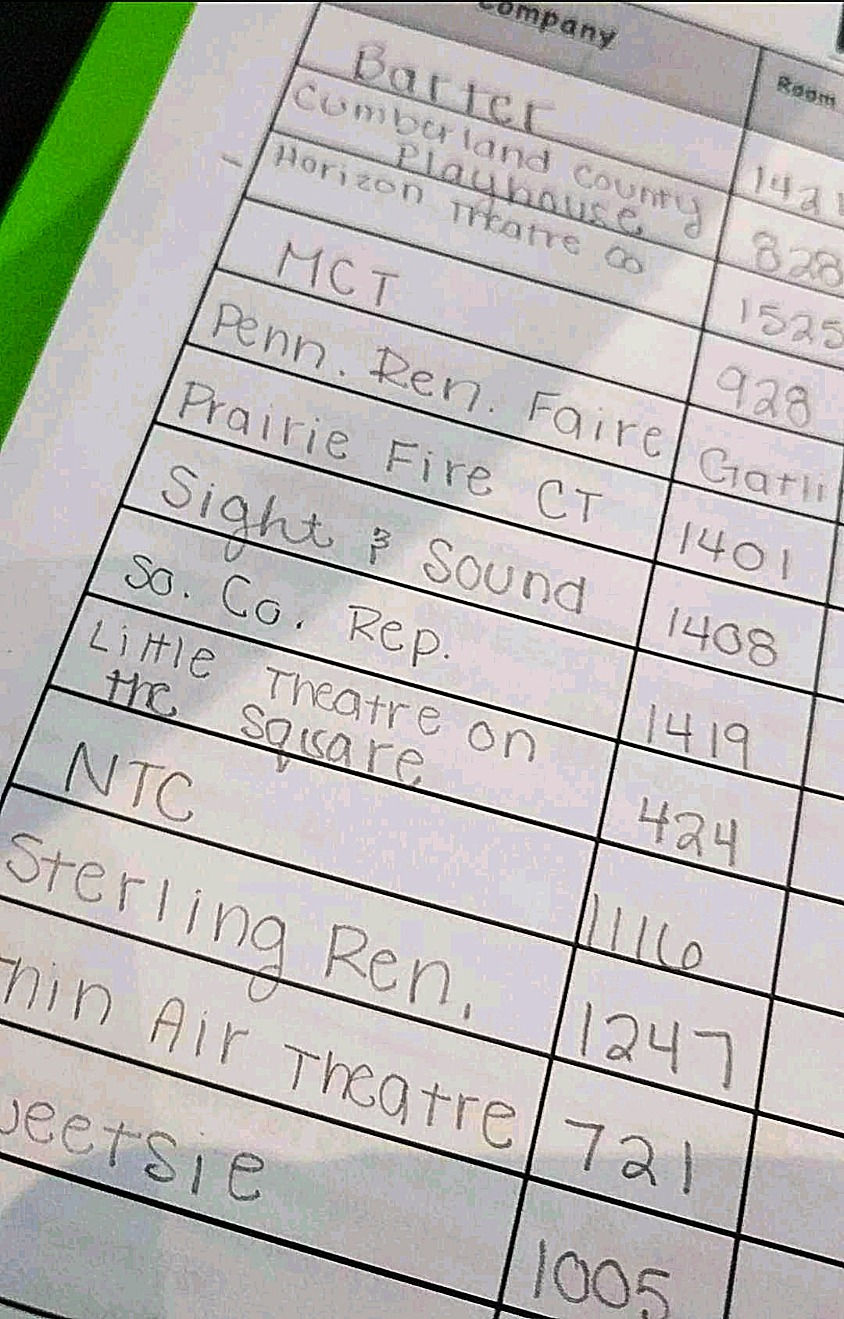 Company Room
Barter 1421
Cumberland County
Playhouse 828
Horizon Theatre Co 1525
MCT 928
Penn. Ren. Faire Gatli
Prairie Fire CT 1401
Sight & Sound 1408
So. Co. Rep. 1419
Little Theatre on
the Square 424
NTC 1116
Sterling Ren. 1247
Thin Air Theatre 721
weetsie 1005